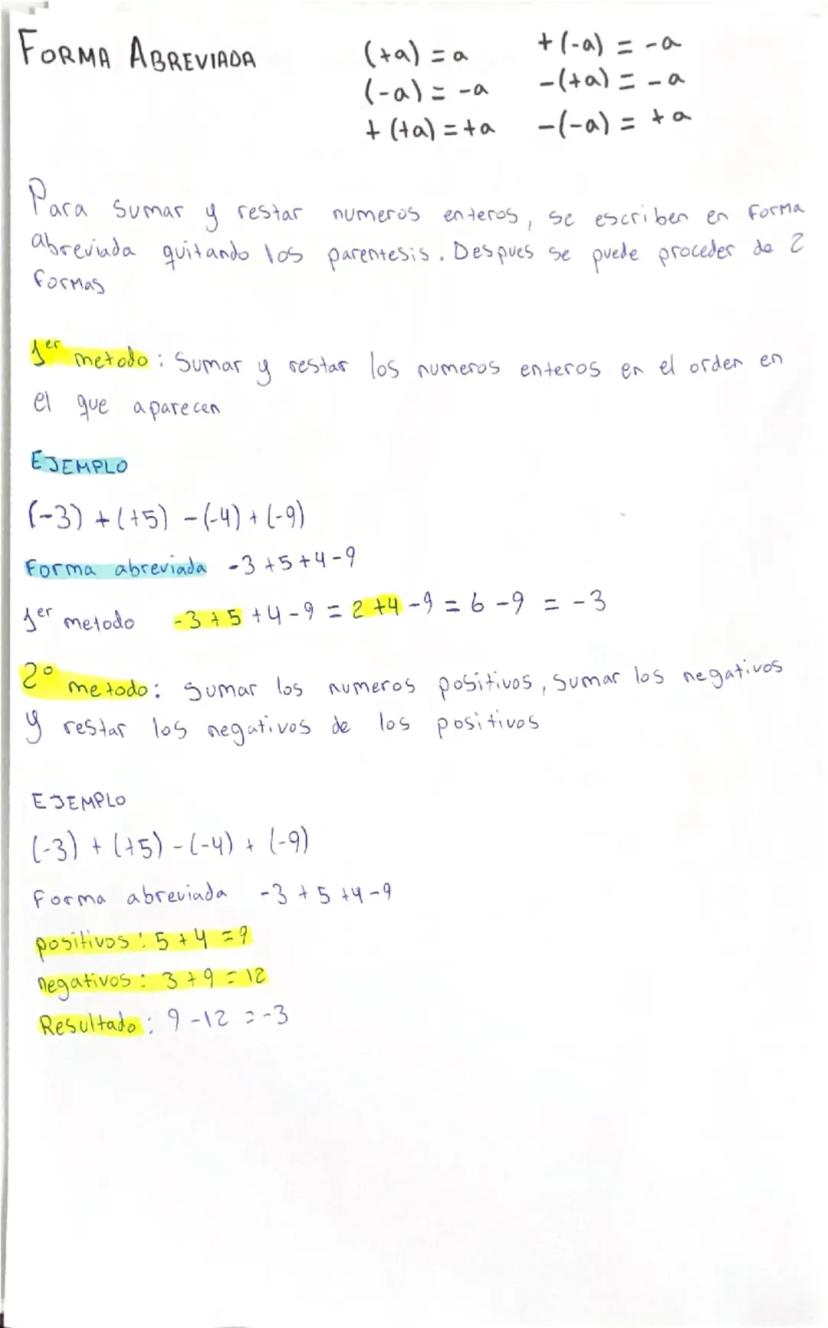 FORMA ABREVIADA
(+a) = a
+(-a) = -a
(-a) = -a
-(+a) = -a
+(+a) = +a
-(-a) = +a
Para sumar y restar numeros enteros, se escriben en forma
abreviada quitando los parentesis. Despues se puede proceder de 2
formas
1er metodo: Sumar y restar los numeros enteros en el orden en
el que aparecen
EJEMPLO
(-3) + (+5) - (-4) + (-9)
Forma abreviada -3 +5 +4 -9
1er metodo -3 + 5 + 4 - 9 = 2 + 4 - 9 = 6 - 9 = -3
2º metodo: Sumar los numeros positivos, sumar los negativos
y restar los negativos de los positivos
EJEMPLO
(-3) + (+5) - (-4) + (-9)
Forma abreviada -3 + 5 +4 -9
positivos: 5 + 4 = 9
negativos: 3 + 9 = 12
Resultado: 9 - 12 = -3